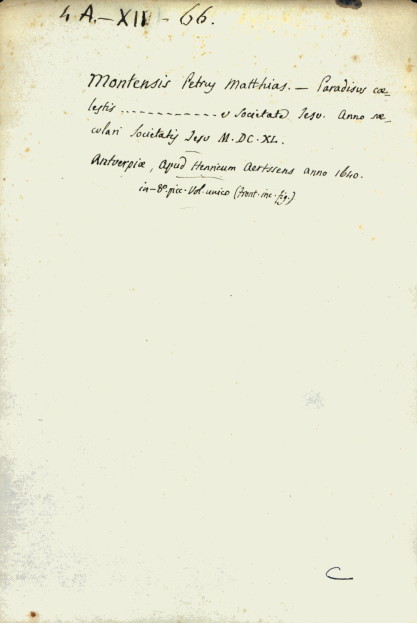 4 A.-XII-66.
Montensis Petrus Matthias. — Paradisus cæ=
lestis ............ e Societate Jesu. Anno sæ=
culari Societatis Jesu M.DC.XL.
Antverpiæ, apud Henricum Aertssens anno 1640.
in-8º. picc. Vol. unico (front. inc. fig.)
C